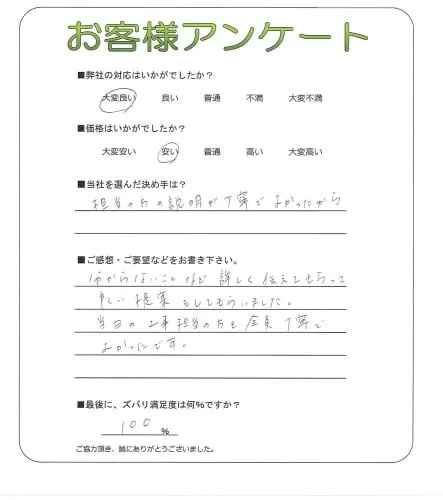 お客様アンケート
■弊社の対応はいかがでしたか?
大変良い 良い 普通 不満 大変不満
■価格はいかがでしたか?
大変安い 安い 普通 高い 大変高い
■当社を選んだ決め手は?
担当の方の説明が丁寧でよかったから
■ご感想・ご要望などをお書き下さい。
分からないことなど詳しく伝えてもらって
提案をしてもらいました。
当日の工事担当の方も全員丁寧で
よかったです。
■最後に、ズバリ満足度は何%ですか?
100 %
ご協力頂き、誠にありがとうございました。